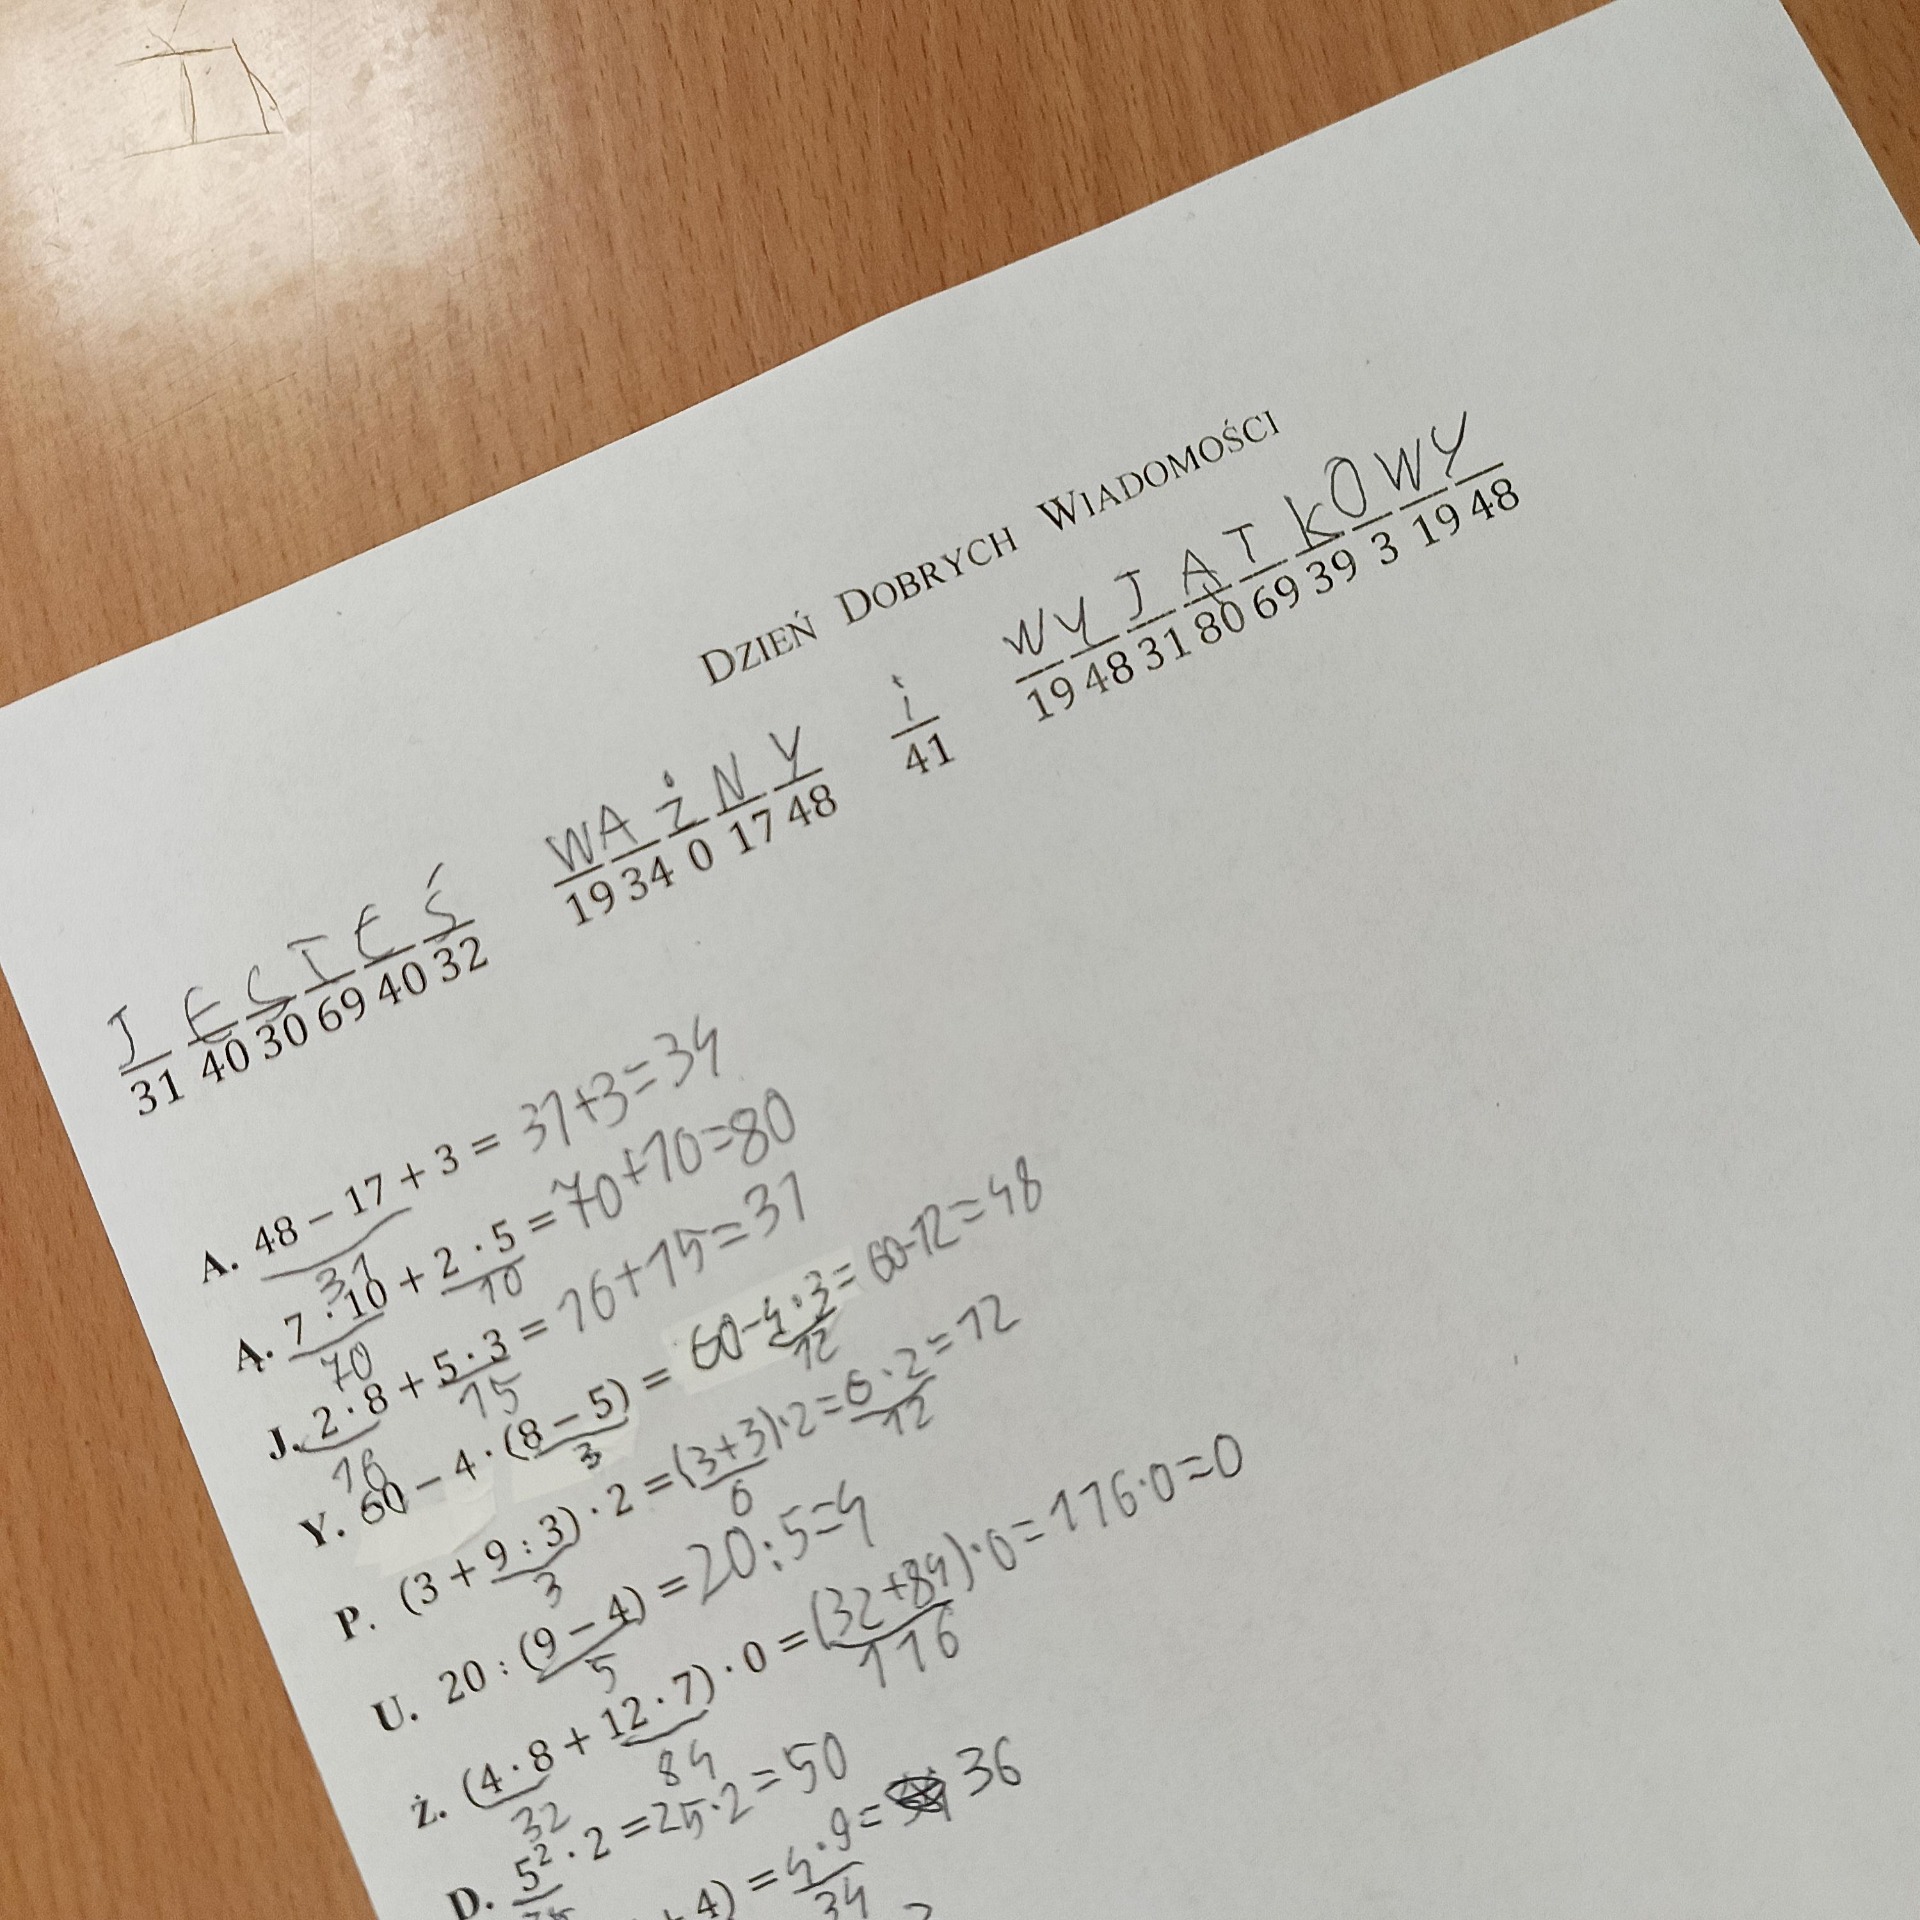 DZIEŃ DOBRYCH WIADOMOŚCI
JESTEŚ WAŻNY i WYJĄTKOWY
31 40 30 69 40 32 19 34 0 17 48 41 19 48 31 80 69 39 3 19 48
A. 48 − 17 + 3 = 31+3=34
31
A. 7 · 10 + 2 · 5 = 70+10=80
70 10
J. 2 · 8 + 5 · 3 = 16+15=31
16 15
Y. 60 − 4 · (8 − 5) = 60-4·3= 60-12=48
3 12
P. (3 + 9 : 3) · 2 = (3+3)·2=6·2=12
3 6 12
U. 20 : (9 − 4) = 20:5=4
5
Ż. (4 · 8 + 12 · 7) · 0 = (32+84)·0=116·0=0
32 84 116
D. 5² · 2 = 25·2=50
+ 4) = 4·9= 36
34